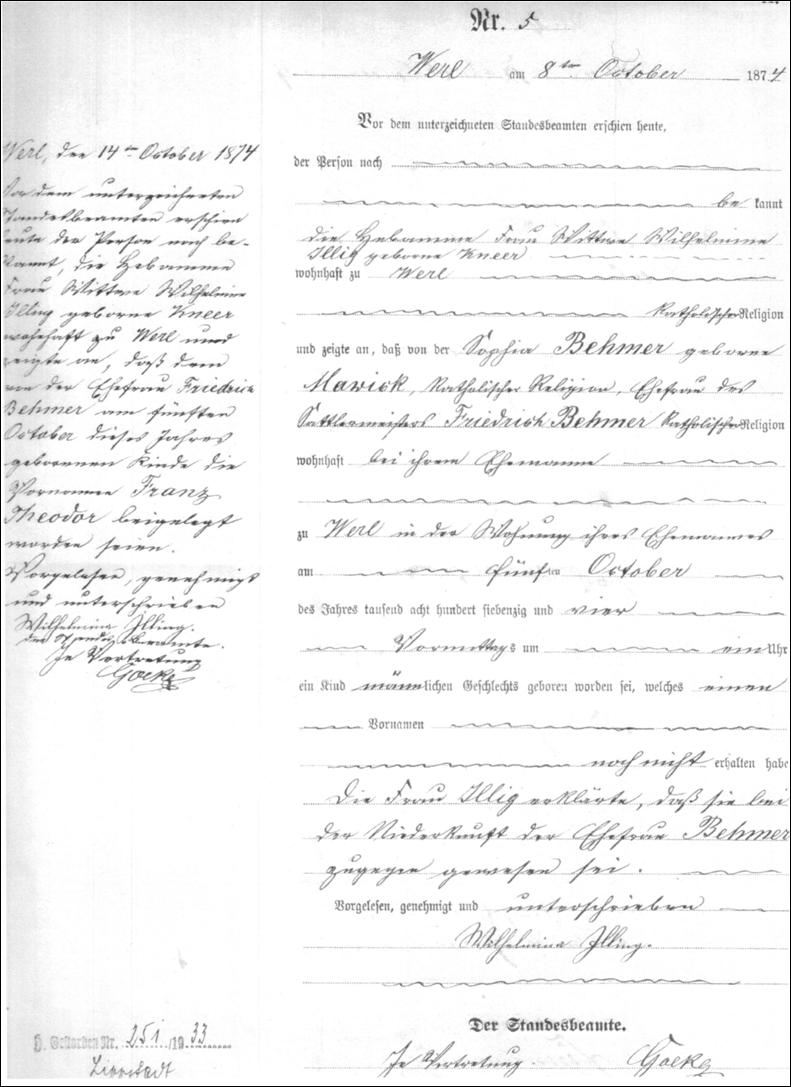 Nr. 5
Werl am 8ten October 1874
Vor dem unterzeichneten Standesbeamten erschien heute,
der Person nach
be kannt
die Hebamme Frau Wittwe Wilhelmine
Illig geborne Kneer
wohnhaft zu Werl
katholischer Religion
und zeigte an, daß von der Sophia Behmer geborne
Mawick, katholischer Religion, Ehefrau des
Sattlermeisters Friedrich Behmer katholischer Religion
wohnhaft bei ihrem Ehemanne
zu Werl in der Wohnung ihres Ehemannes
am fünften October
des Jahres tausend acht hundert siebenzig und vier
Vormittags um ein Uhr
ein Kind männlichen Geschlechts geboren worden sei, welches einen
Vornamen
noch nicht erhalten habe
Die Frau Illig erklärte, daß sie bei
der Niederkunft der Ehefrau Behmer
zugegen gewesen sei.
Vorgelesen, genehmigt und unterschrieben
Wilhelmina Illing.
Der Standesbeamte.
In Vertretung
Werl, den 14ten October 1874
Vor dem unterzeichneten
Standesbeamten erschien
heute der Person nach be-
kannt, die Hebamme
Frau Wittwe Wilhelmine
Illing geborne Kneer
wohnhaft zu Werl und
zeigte an, daß dem
von der Ehefrau Friedrich
Behmer am fünften
October dieses Jahres
geborenen Kinde die
Vornamen Franz
Theodor beigelegt
worden seien.
Vorgelesen, genehmigt
und unterschrieben
Wilhelmina Illing.
der Standesbeamte.
In Vertretung
Gestorben Nr. 251/1933
Lippstadt